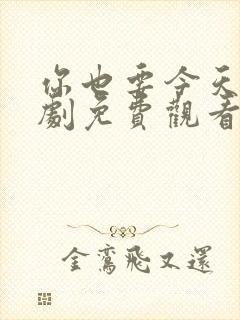 你也要今天
劇免費觀看
金鸞飛又還